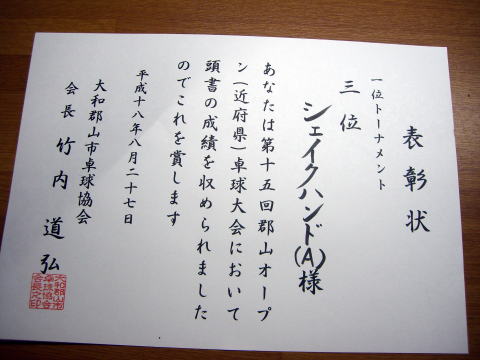 表彰状
一位トーナメント
三位
シェイクハンド(A)様
あなたは第十五回郡山オープ
ン(近府県)卓球大会において
頭書の成績を収められました
のでこれを賞します
平成十八年八月二十七日
大和郡山市卓球協会
会長 竹内道弘
大和郡山市
卓球協会
会長之印